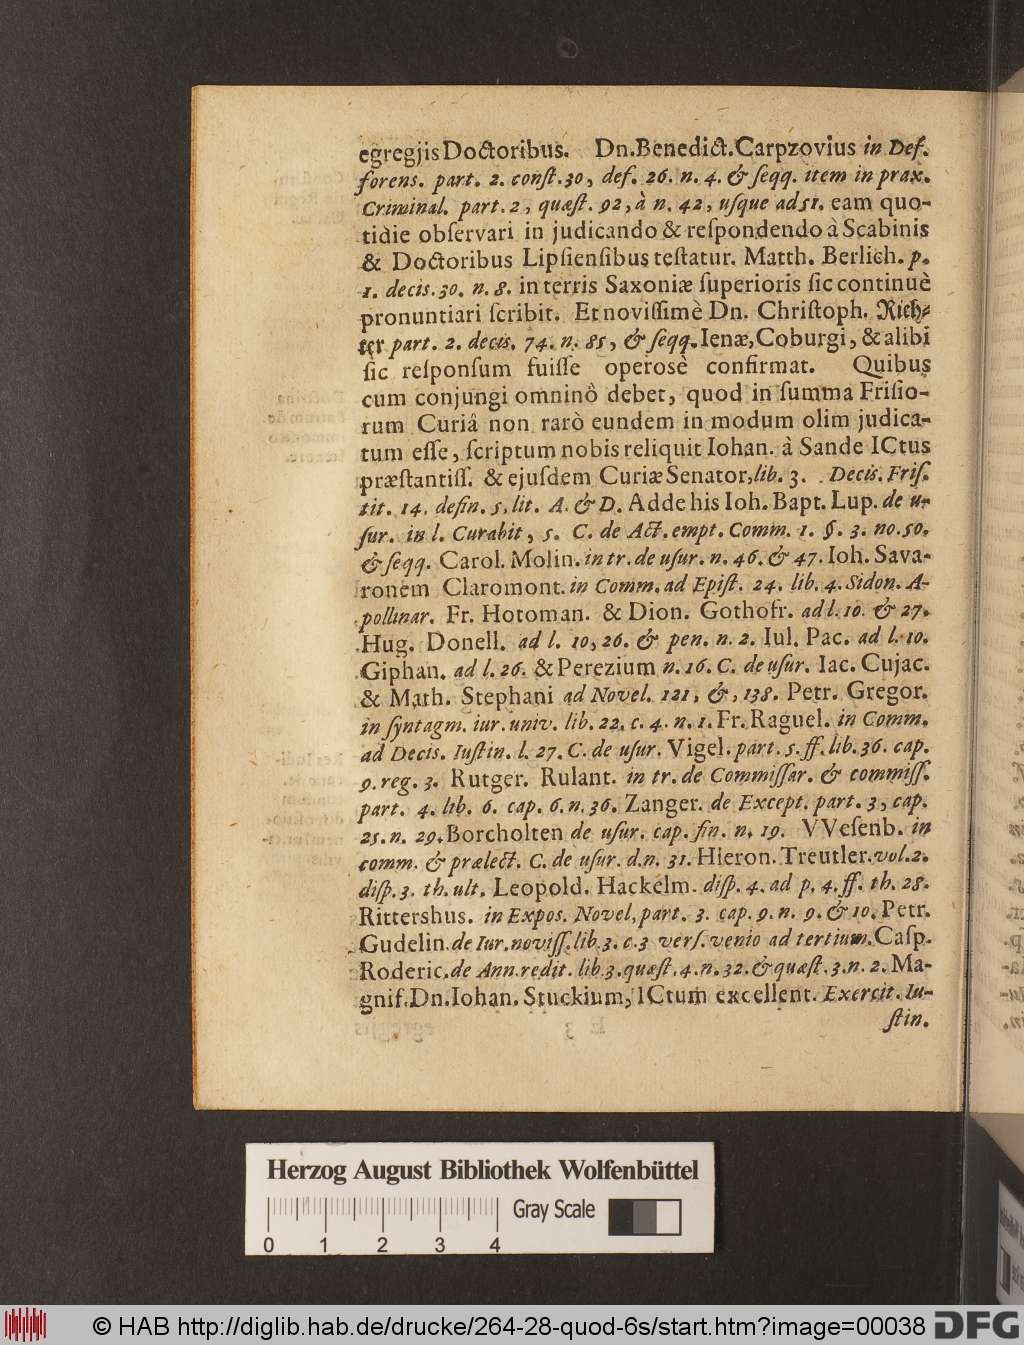 egregjis Doctoribus. Dn. Benedict. Carpzovius in Def.
forens. part. 2. conſt. 30, def. 26. n. 4. & ſeqq. item in prax.
Criminal. part. 2, quæſt. 92, à n. 42, uſque ad 51. eam quo-
tidie obſervari in judicando & reſpondendo à Scabinis
& Doctoribus Lipſienſibus teſtatur. Matth. Berlich. p.
1. decis. 30. n. 8. in terris Saxoniæ ſuperioris ſic continuè
pronuntiari ſcribit. Et noviſſimè Dn. Chriſtoph. Rich-
ter part. 2. decis. 74. n. 85, & ſeqq. Ienæ, Coburgi, & alibi
ſic reſponſum fuiſſe operosè confirmat. Quibus
cum conjungi omninò debet, quod in ſumma Friſio-
rum Curiâ non rarò eundem in modum olim judica-
tum eſſe, ſcriptum nobis reliquit Iohan. à Sande ICtus
præſtantiſſ. & ejuſdem Curiæ Senator, lib. 3. Decis. Friſ.
tit. 14. defin. 5. lit. A. & D. Adde his Ioh. Bapt. Lup. de u-
ſur. in l. Curabit, 5. C. de Act. empt. Comm. 1. §. 3. no. 50.
& ſeqq. Carol. Molin. in tr. de uſur. n. 46. & 47. Ioh. Sava-
ronem Claromont. in Comm. ad Epiſt. 24. lib. 4. Sidon. A-
pollinar. Fr. Hotoman. & Dion. Gothofr. ad l. 10. & 27.
Hug. Donell. ad l. 10, 26. & pen. n. 2. Iul. Pac. ad l. 10.
Giphan. ad l. 26. & Perezium n. 16. C. de uſur. Iac. Cujac.
& Math. Stephani ad Novel. 121, &, 138. Petr. Gregor.
in ſyntagm. iur. univ. lib. 22. c. 4. n. 1. Fr. Raguel. in Comm.
ad Decis. Iuſtin. l. 27. C. de uſur. Vigel. part. 5. ff. lib. 36. cap.
9. reg. 3. Rutger. Rulant. in tr. de Commiſſar. & commiſſ.
part. 4. lib. 6. cap. 6. n. 36. Zanger. de Except. part. 3, cap.
25. n. 29. Borcholten de uſur. cap. fin. n. 19. VVeſenb. in
comm. & prælect. C. de uſur. d. n. 31. Hieron. Treutler. vol. 2.
diſp. 3. th. ult. Leopold. Hackelm. diſp. 4. ad p. 4. ff. th. 28.
Rittershus. in Expos. Novel, part. 3. cap. 9. n. 9. & 10. Petr.
Gudelin. de Iur. noviſſ. lib. 3. c. 3 verſ. venio ad tertium. Caſp.
Roderic. de Ann. redit. lib. 3. quæſt. 4. n. 32. & quæſt. 3. n. 2. Ma-
gnif. Dn. Iohan. Stuckium, ICtum excellent. Exercit. Iu-
ſtin.
Herzog August Bibliothek Wolfenbüttel
Gray Scale
0 1 2 3 4
© HAB http://diglib.hab.de/drucke/264-28-quod-6s/start.htm?image=00038
DFG